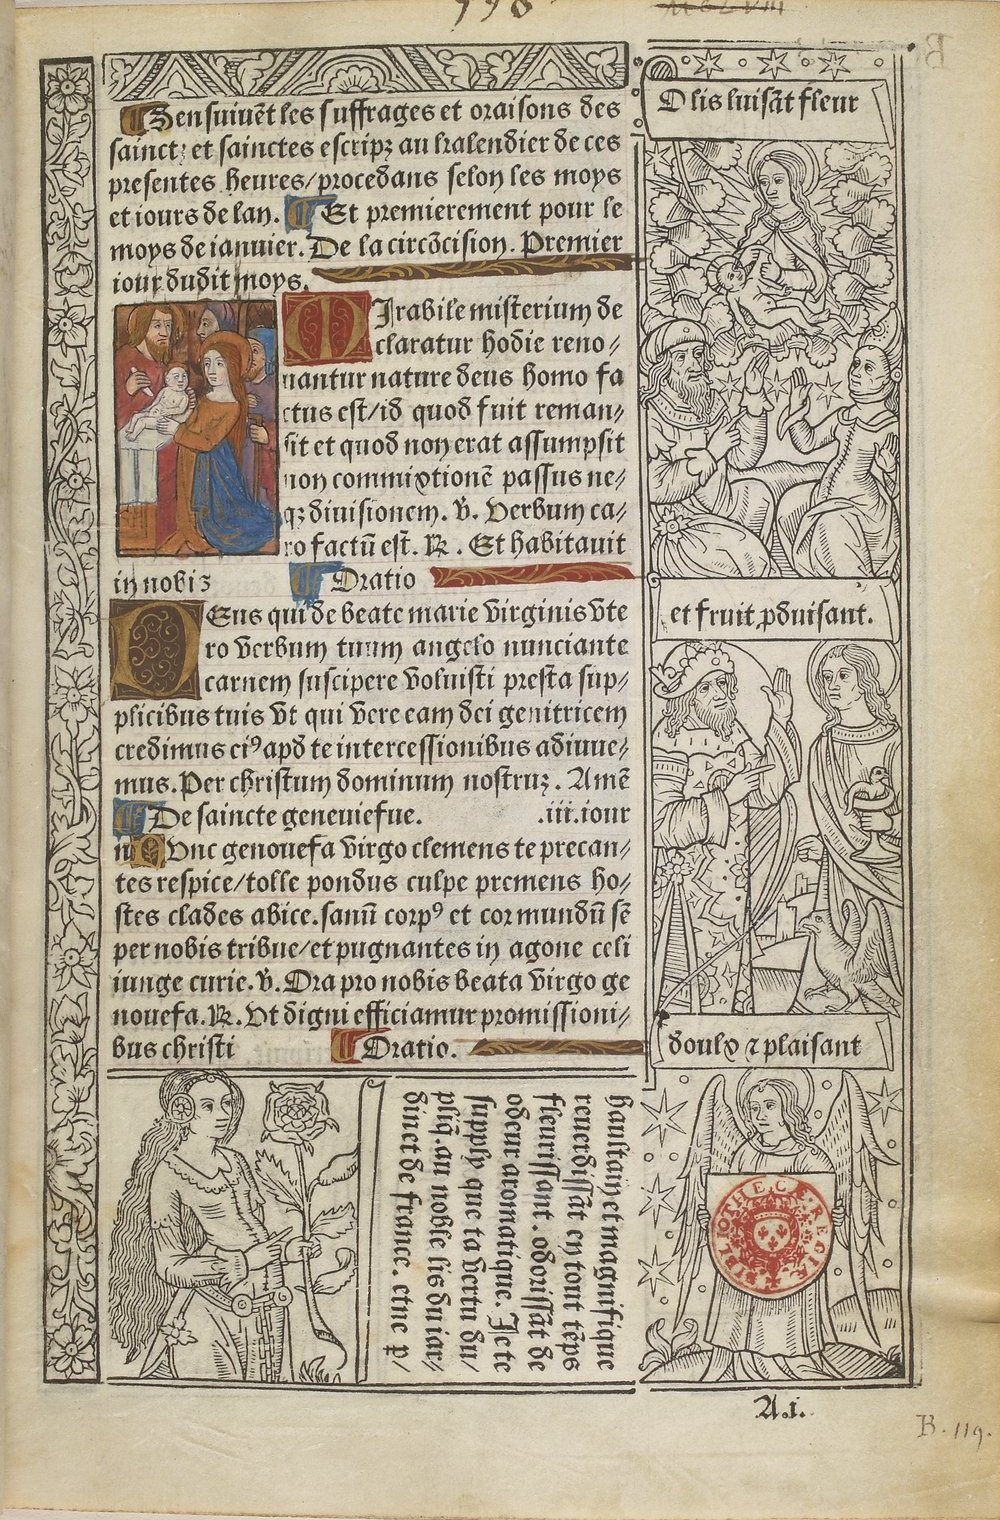 Sensuiuẽt les suffrages et oraisons des
sainctz et sainctes escripz au kalendier de ces
presentes heures/procedans selon les moys
et iours de lan. Et premierement pour le
moys de ianuier. De la circõcision. Premier
iour dudit moys.
MIrabile misterium de
claratur hodie reno/
uantur nature deus homo fa
ctus est/id quod fuit reman/
sit et quod non erat assumpsit
non commixtionẽ passus ne/
qz diuisionem. ṽ. Verbum ca/
ro factũ est. ℟. Et habitauit
in nobis
Oratio
DEus qui de beate marie virginis vte
ro verbum tuum angelo nunciante
carnem suscipere voluisti presta sup/
plicibus tuis vt qui vere eam dei genitricem
credimus eiꝰ apd te intercessionibus adiuue/
mus. Per christum dominum nostruz. Amẽ
De saincte geneuiefue. .iii.iour
nVnc genouefa virgo clemens te precan/
tes respice/tolle pondus culpe premens ho/
stes clades abice. sanũ corpꝰ et cor mundũ sẽ
per nobis tribue/et pugnantes in agone celi
iunge curie. ṽ. Ora pro nobis beata virgo ge
nouefa. ℟. Vt digni efficiamur promissioni/
bus christi
Oratio.
O lis luisãt fleur
et fruit ꝓduisant.
doulx ⁊ plaisant
haultain et magnifique
reuerdissãt en tout tẽps
fleurissant. odorissãt de
odeur aromatique. Je te
supply que ta vertu du/
pliq̃. au noble lis du iar/
dinet de france. et ne p/
BIBLIOTHECÆ REGIÆ
A.i.
B. 119.